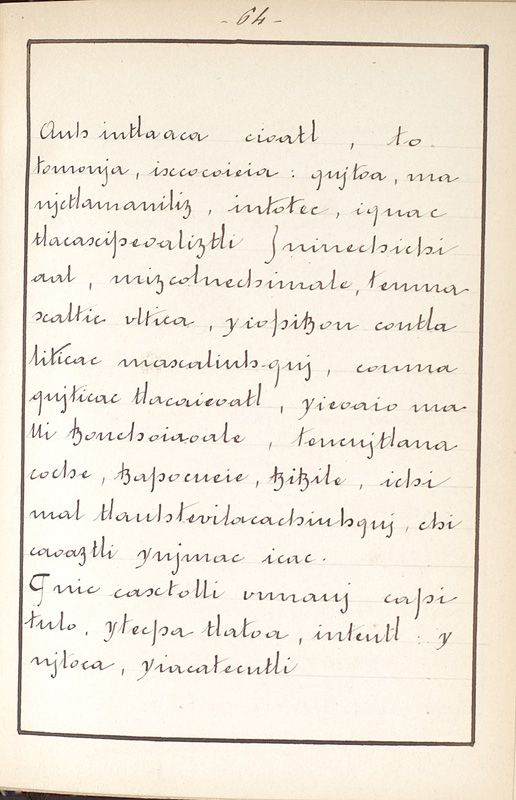 - 64 -
Auh intlaaca cioatl, to
tomonja, ixcocoieia: qujtoa, ma
njctlamaniliz, intotec, iquac
tlacaxipeoaliztli } ninechichi
aal, mizcolnechimale, temma
xaltic vltica, yiopitzon contla
liticac maxaliuh-quj, comma
qujticac tlacaieoatl, yieoaio ma
lli tzonchoiaoale, teucujtlana
coche, tzapocueie, tzitzile, ichi
mal tlauhtevilacachiuhquj, chi
caoaztli ynjmac icac.
Ɠnic caxtolli vmnauj capi
tulo, ytecpa tlatoa, inteutl: y
njtoca, yiacatecutli